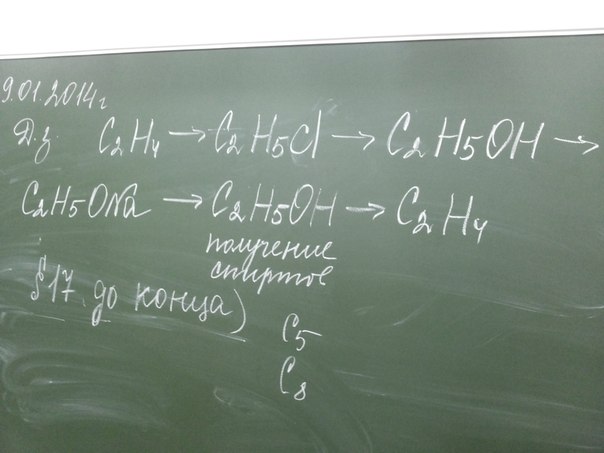 9.01.2014г
Д.з. C₂H₄ → C₂H₅Cl → C₂H₅OH →
C₂H₅ONa → C₂H₅OH → C₂H₄
получение
спиртов
§17 до конца)
C₅
C₈